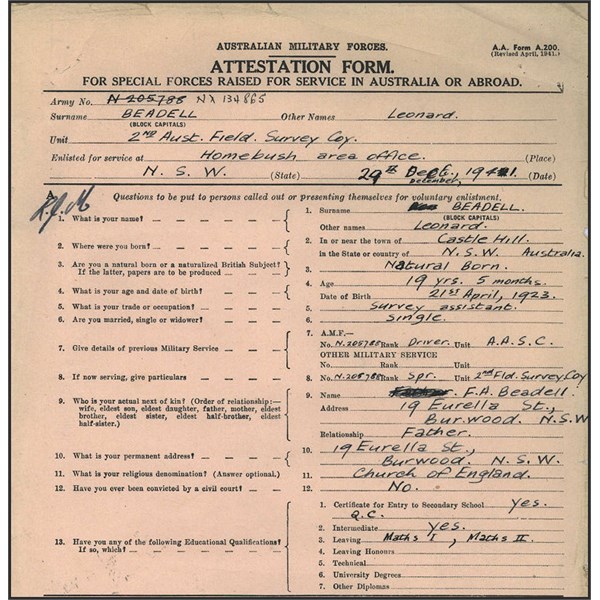 AUSTRALIAN MILITARY FORCES.
A.A. Form A.200.
(Revised April, 1941.)
ATTESTATION FORM.
FOR SPECIAL FORCES RAISED FOR SERVICE IN AUSTRALIA OR ABROAD.
Army No. N 205788 NX 134865
Surname BEADELL Other Names Leonard.
(BLOCK CAPITALS)
Unit 2ND Aust. Field. Survey Coy.
Enlisted for service at Homebush area office. (Place)
N. S. W. (State) 29th Dec, 1941. (Date)
December
A. Questions to be put to persons called out or presenting themselves for voluntary enlistment.
1. What is your name? 1. Surname BEADELL.
(BLOCK CAPITALS)
Other names Leonard.
2. Where were you born? 2. In or near the town of Castle Hill.
in the State or country of N.S.W. Australia.
3. Are you a natural born or a naturalized British Subject? If the latter, papers are to be produced 3. Natural Born.
4. What is your age and date of birth? 4. Age 19 yrs. 5 months.
Date of Birth 21ST April, 1923.
5. What is your trade or occupation? 5. Survey assistant.
6. Are you married, single or widower? 6. Single.
7. Give details of previous Military Service 7. A.M.F.—
No. N.205788 Rank Driver. Unit A.A.S.C.
OTHER MILITARY SERVICE
No. Rank Unit
8. If now serving, give particulars 8. No. N.205788 Rank Spr. Unit 2nd Fld. Survey Coy
9. Who is your actual next of kin? (Order of relationship:— wife, eldest son, eldest daughter, father, mother, eldest brother, eldest sister, eldest half-brother, eldest half-sister.) 9. Name Father. F.A. Beadell.
Address 19 Eurella St.,
Burwood. N.S.W
Relationship Father.
10. What is your permanent address? 10. 19 Eurella St.,
Burwood, N.S.W.
11. What is your religious denomination? (Answer optional.) 11. Church of England.
12. Have you ever been convicted by a civil court? 12. No.
13. Have you any of the following Educational Qualifications? If so, which? 1. Certificate for Entry to Secondary School Yes.
Q.C.
2. Intermediate Yes.
3. Leaving Maths I, Maths II.
4. Leaving Honours
5. Technical
6. University Degrees
7. Other Diplomas